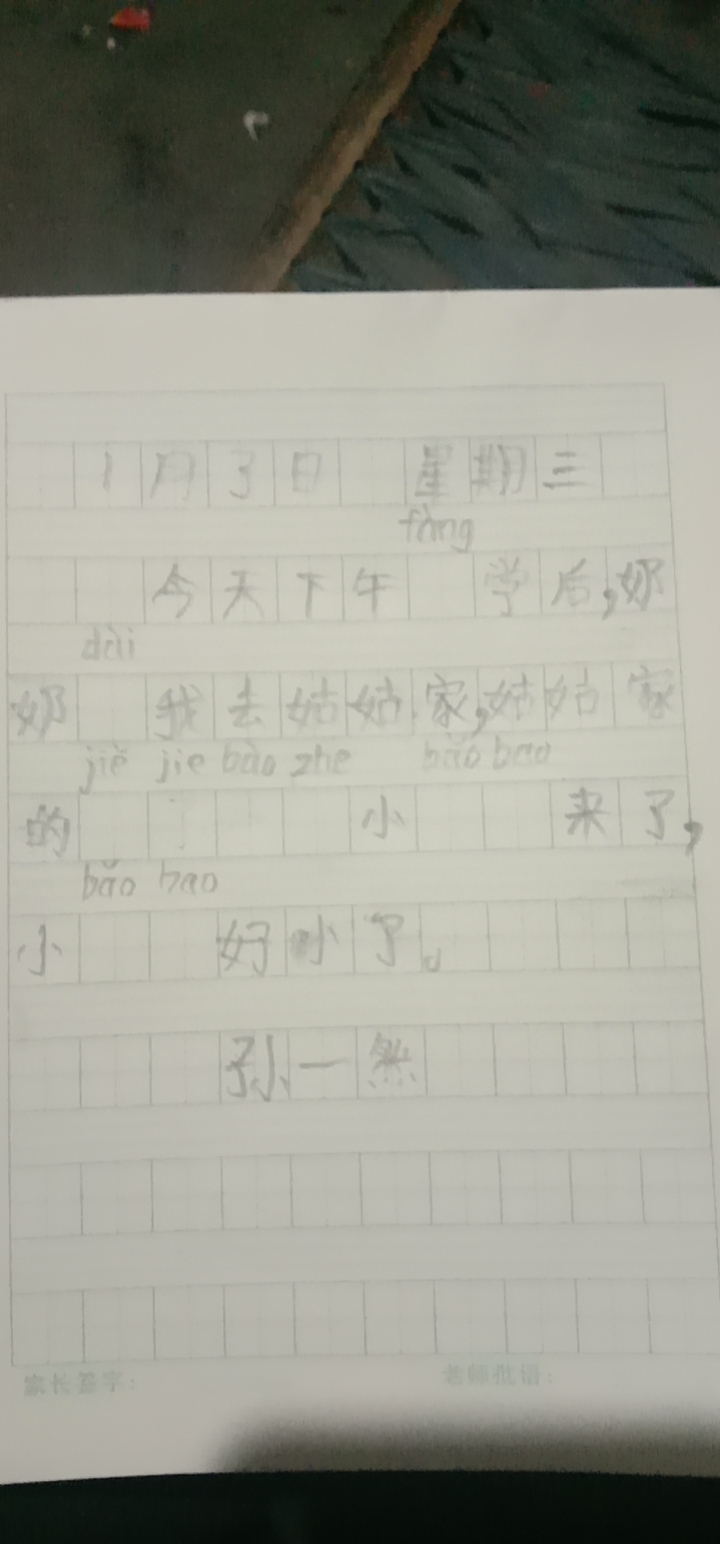 1月3日 星期三
fàng
今天下午 学后,奶
dài
奶 我去姑姑家,姑姑家
jiě jie bào zhe bǎo bao
的 小 来了,
bǎo bao
小 好小了。
孙一然
家长签字: 老师批语: